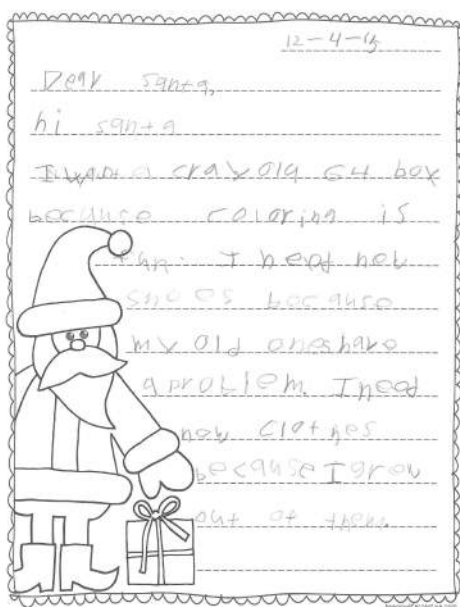 12-4-15
Dear santa,
hi santa
I want a crayola 64 box
because coloring is
fun. I need new
shoes because
my old ones have
a problem. I need
new clothes
because I grow
out of them.